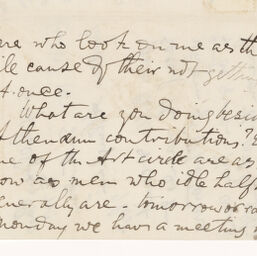 ere who look on me as the
ile cause of their not getting
t once.
What are you doing besi
Athenæum contributions?
ne of the Art circle are as
ow as men who idle half
enerally are - tomorrow or ra
monday we have a meeting